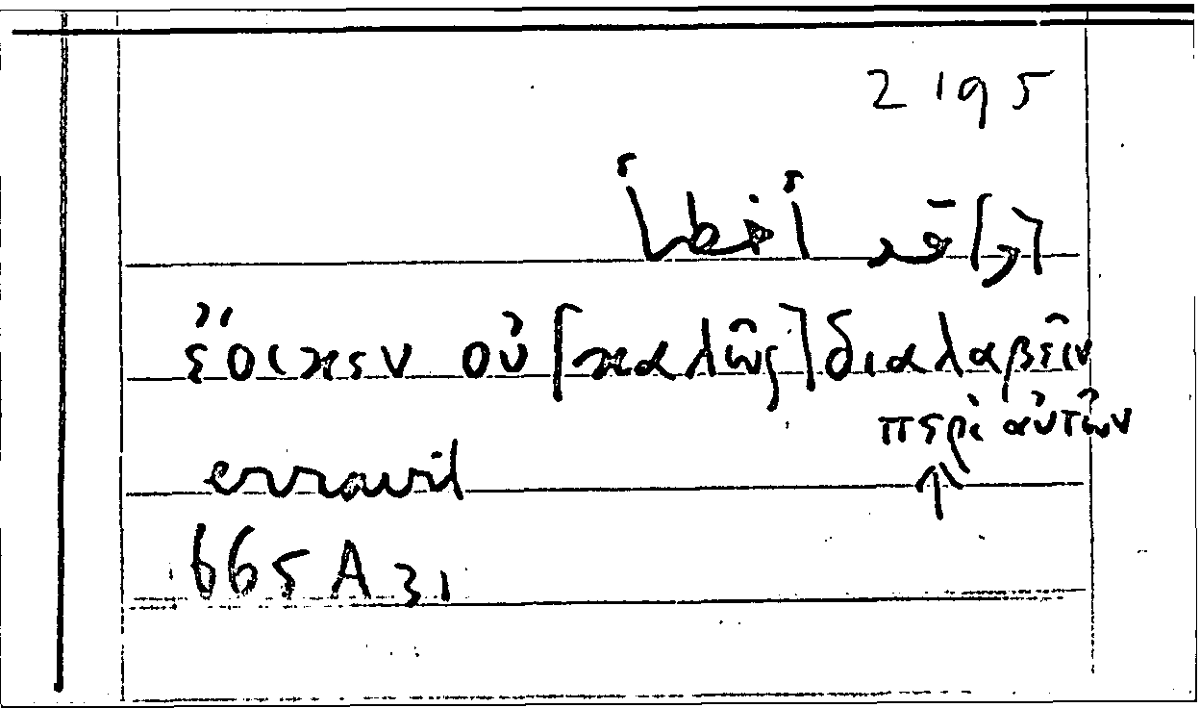 2195
[و]قد أخطأ
ἔοικεν οὐ [καλῶς] διαλαβεῖν
περὶ αὐτῶν
erravit
665 A 31